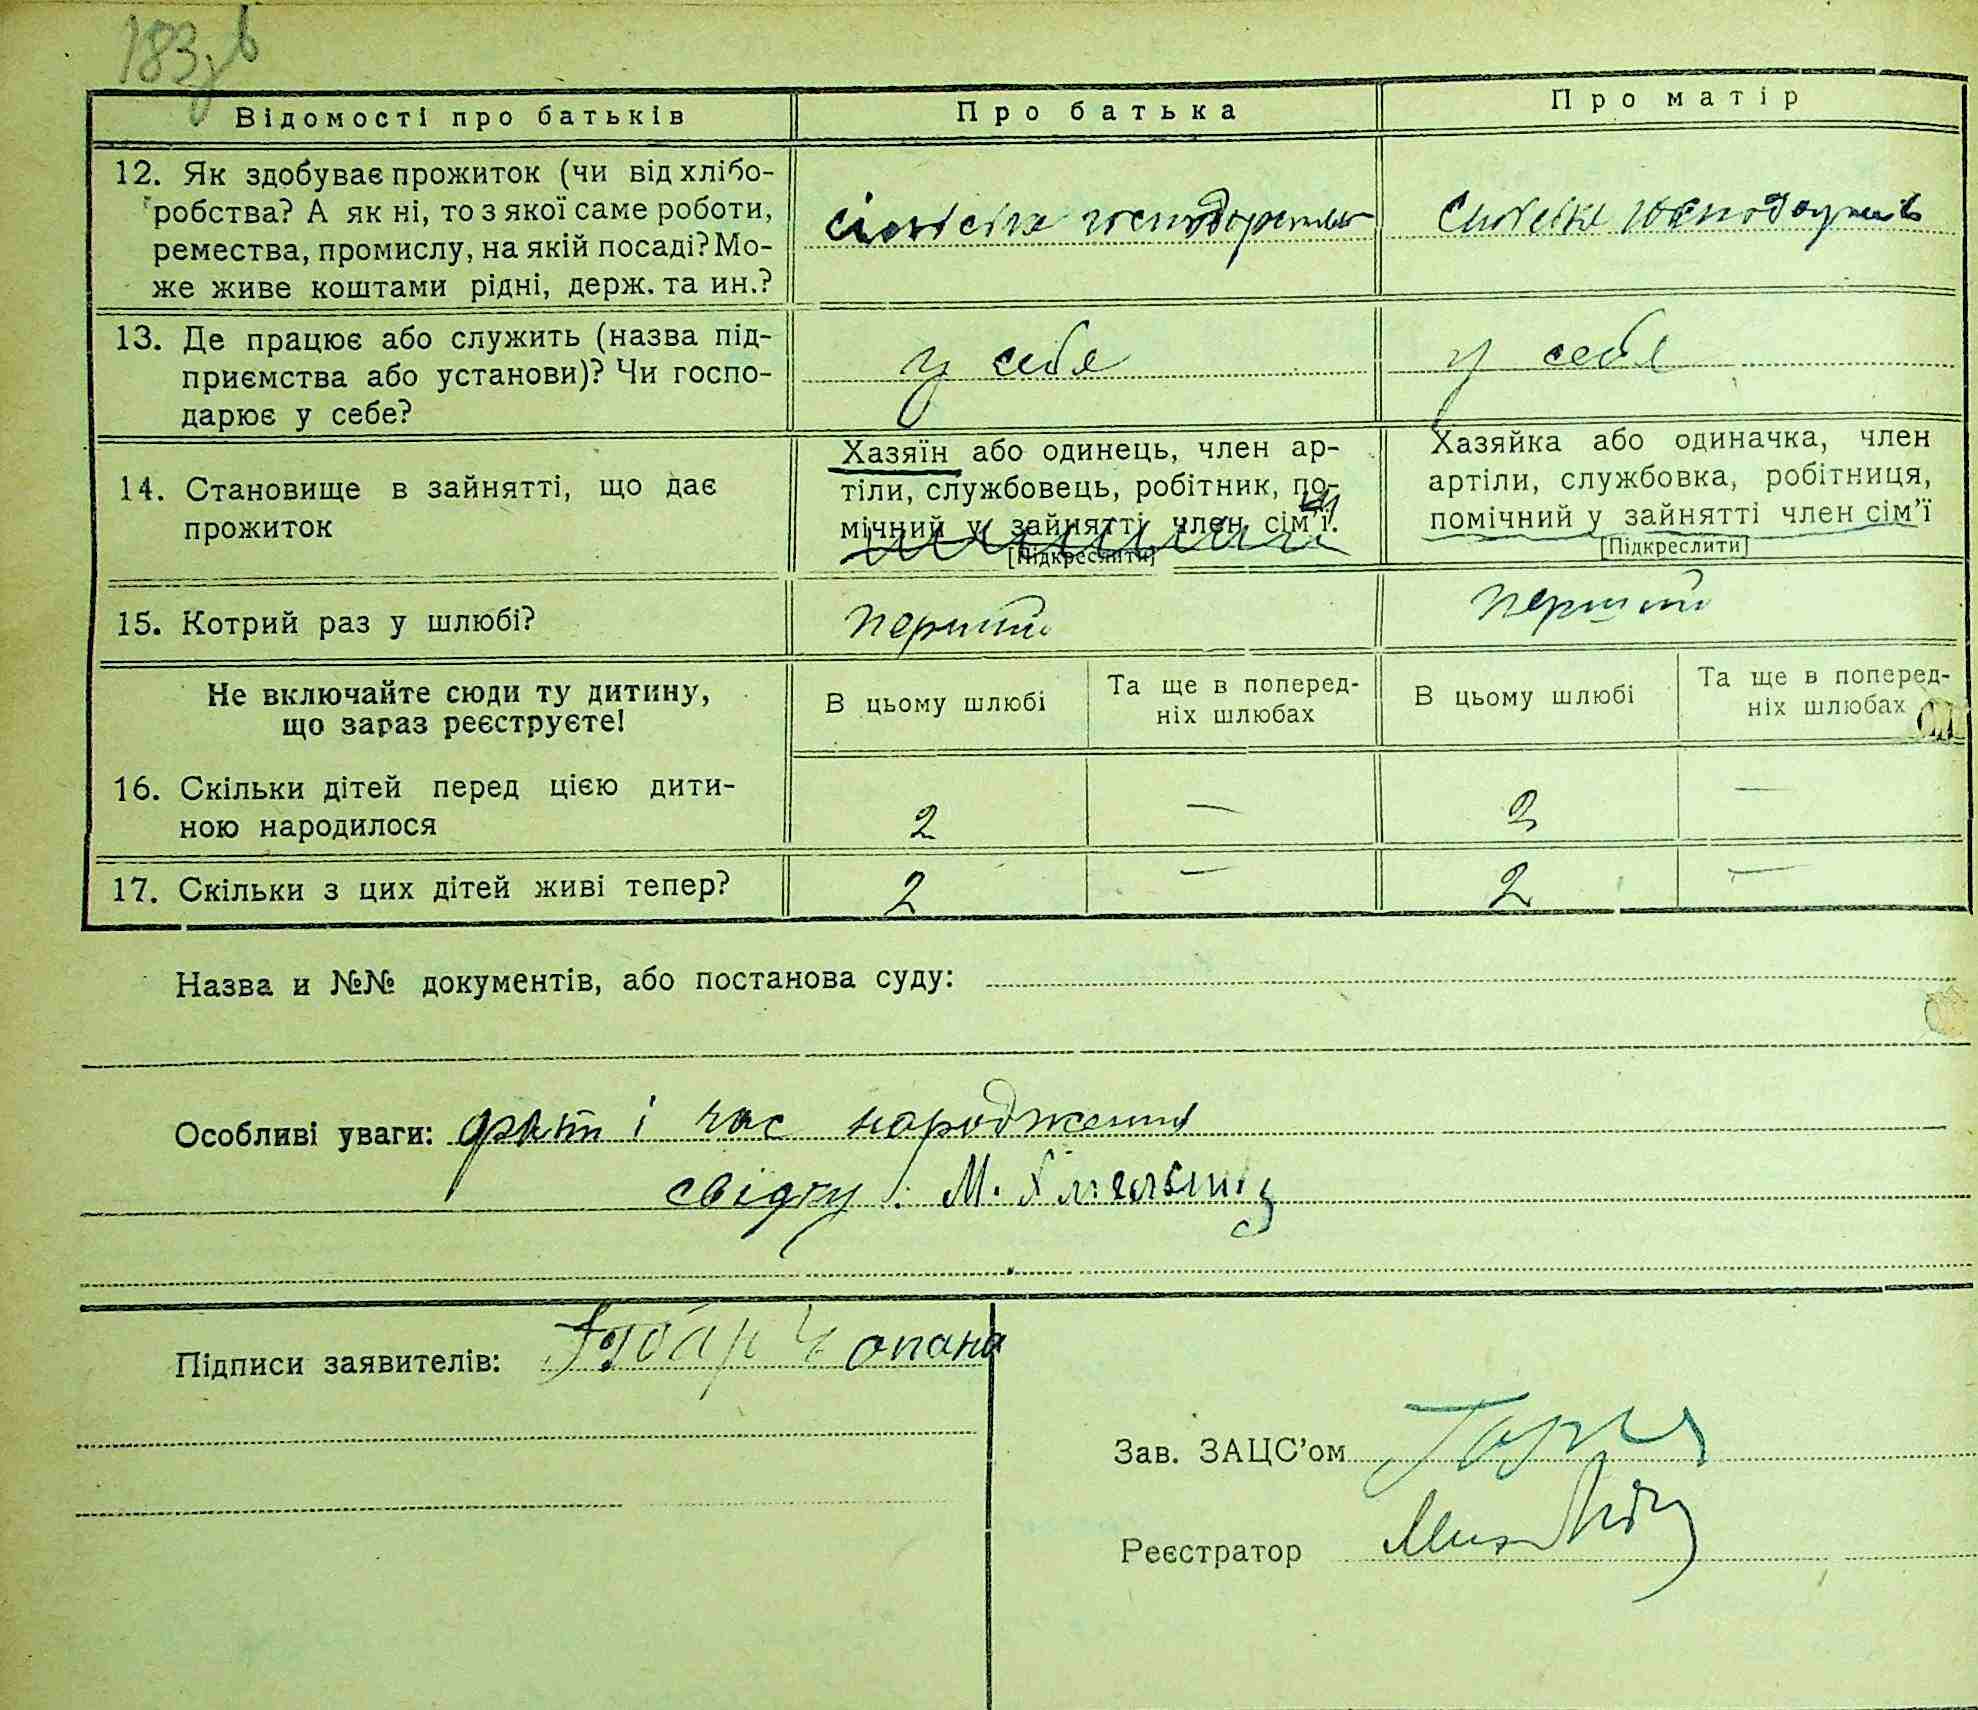 183 зв
Відомості про батьків
Про батька
Про матір
12. Як здобуває прожиток (чи від хлібо-
робства? А як ні, то з якої саме роботи,
ремества, промислу, на якій посаді? Мо-
же живе коштами рідні, держ. та ин.?
сільське господарство
сільське господарство
13. Де працює або служить (назва під-
приємства або установи)? Чи госпо-
дарює у себе?
у себе
у себе
14. Становище в зайнятті, що дає
прожиток
Хазяїн або одинець, член ар-
тіли, службовець, робітник, по-
мічний у зайнятті член сім'ї.
[Підкреслити]
Хазяйка або одиначка, член
артіли, службовка, робітниця,
помічний у зайнятті член сім'ї
[Підкреслити]
15. Котрий раз у шлюбі?
перший
перший
Не включайте сюди ту дитину,
що зараз реєструєте!
В цьому шлюбі
Та ще в поперед-
ніх шлюбах
В цьому шлюбі
Та ще в поперед-
ніх шлюбах
16. Скільки дітей перед цією дити-
ною народилося
2 — 2 —
17. Скільки з цих дітей живі тепер?
2 — 2 —
Назва и №№ документів, або постанова суду:
Особливі уваги: факт і час народження
свідчу: М.
Підписи заявителів:
Зав. ЗАЦС'ом
Реєстратор